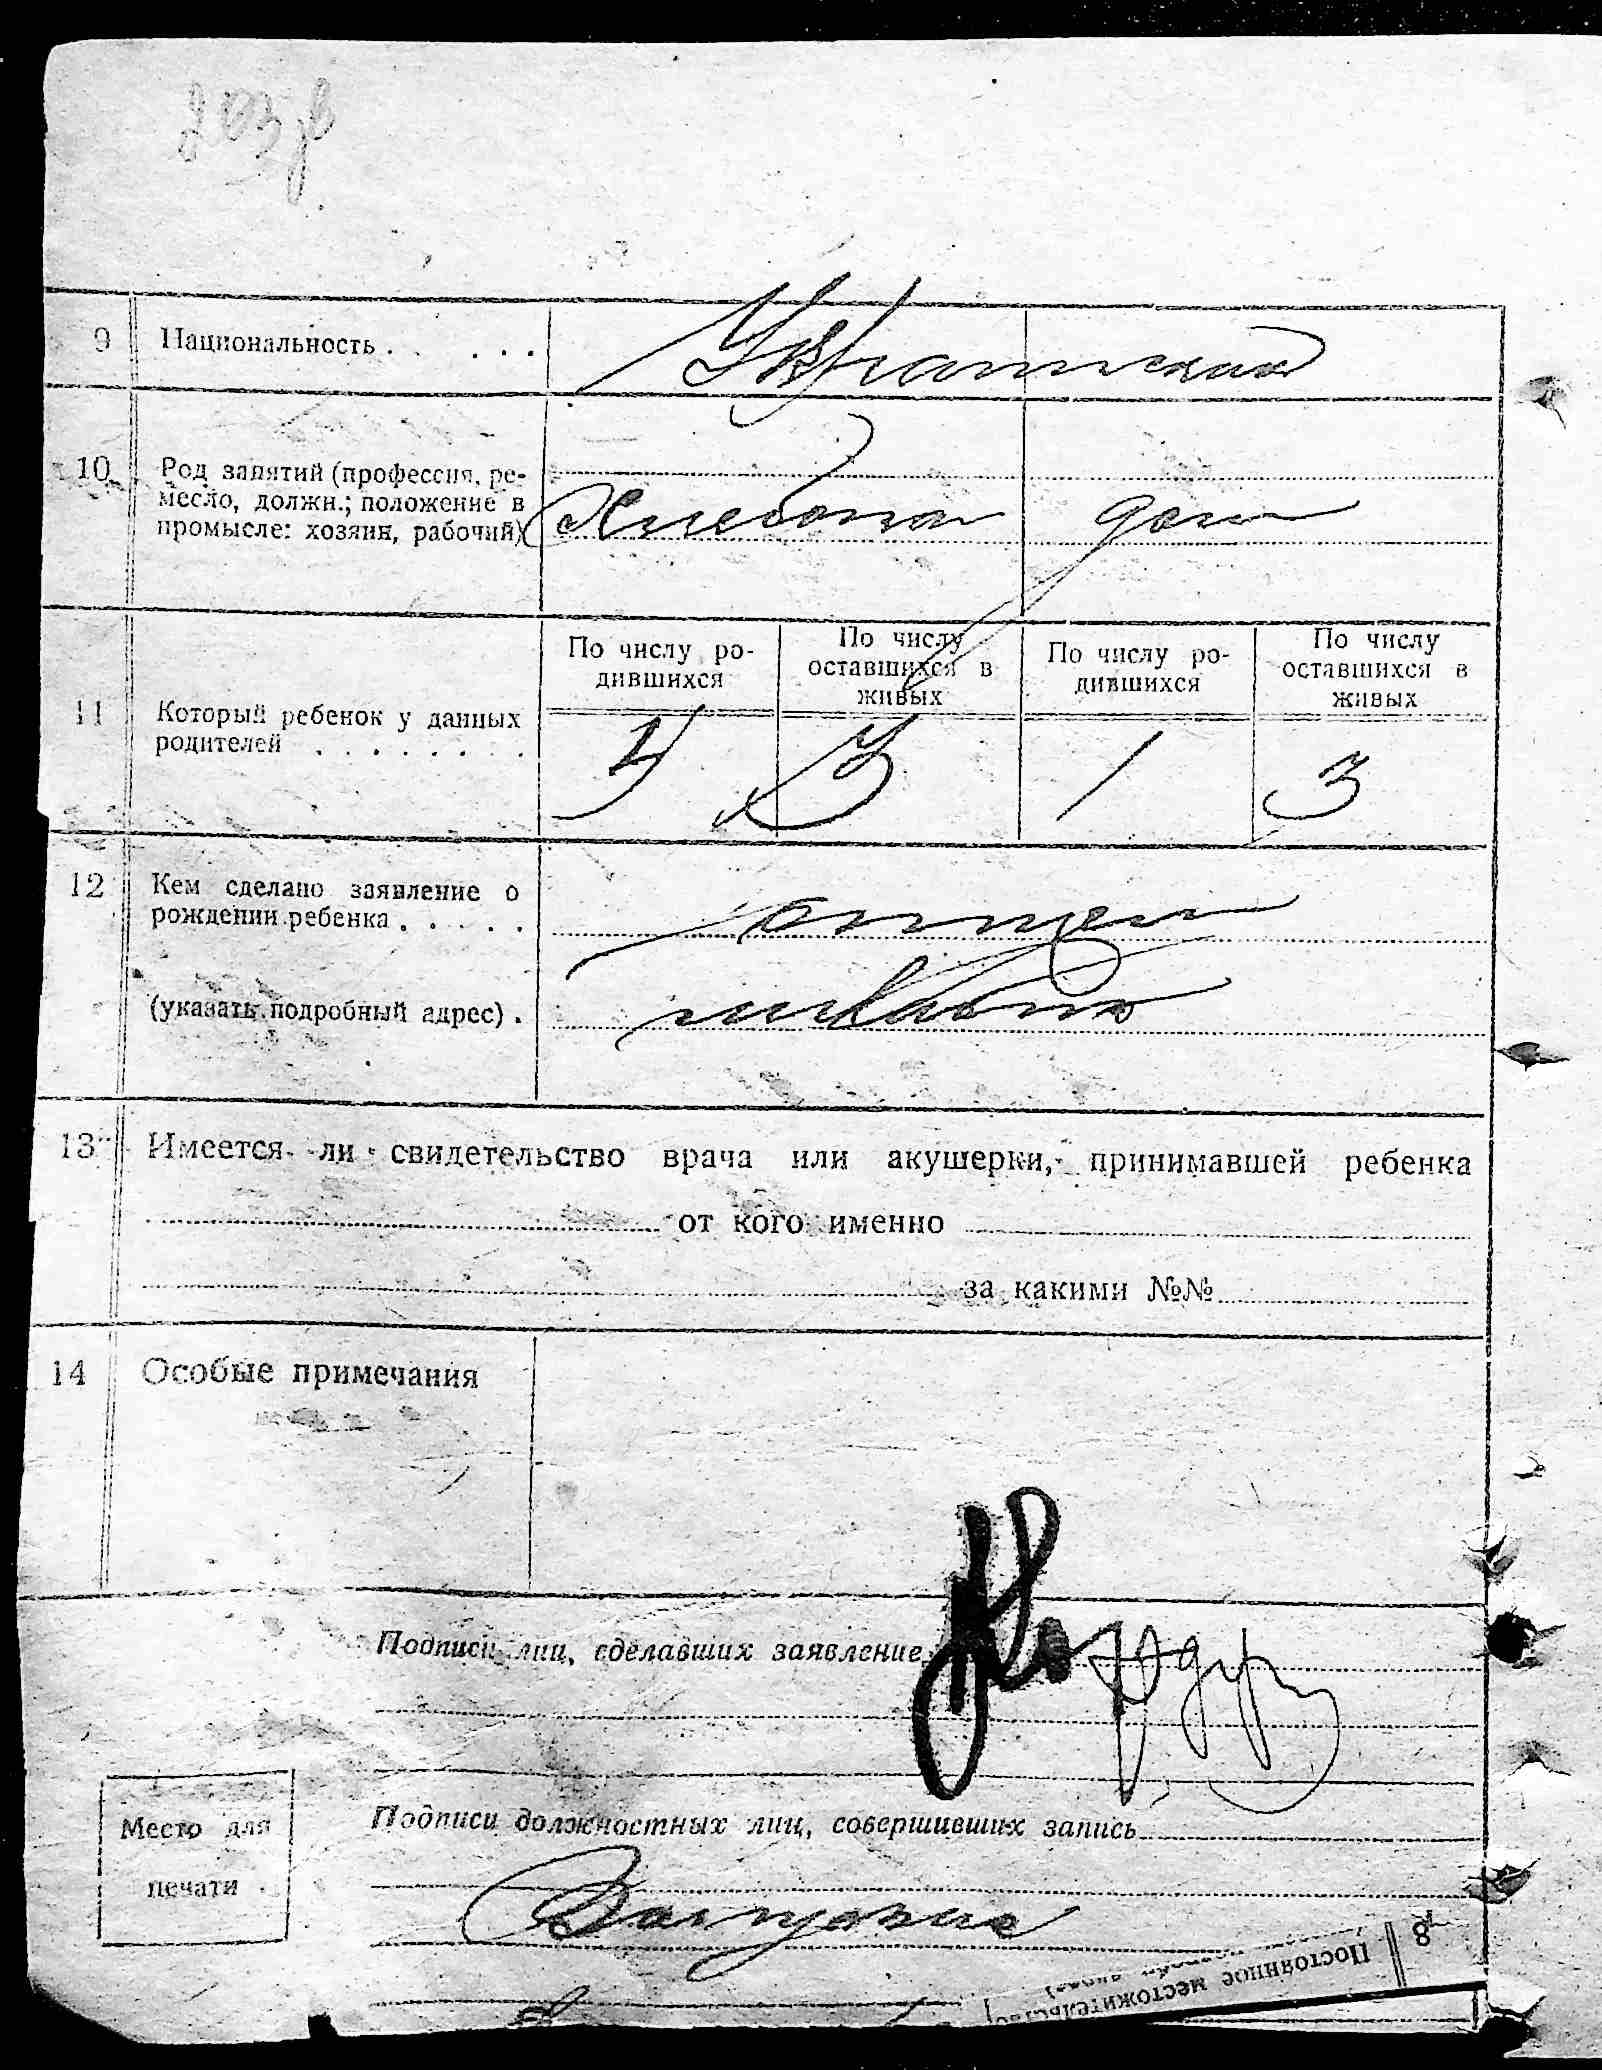 9 Национальность . . . . . Украинская
10 Род занятий (профессия, ре-
месло, должн.; положение в
промысле: хозяин, рабочий)
дом
По числу ро-
дившихся
По числу
оставшихся в
живых
По числу ро-
дившихся
По числу
оставшихся в
живых
11 Который ребенок у данных
родителей . . . . . . . .
3 1 3
12 Кем сделано заявление о
рождении ребенка . . . . . отцем
(указать подробный адрес) .
13 Имеется ли свидетельство врача или акушерки, принимавшей ребенка
от кого именно
за какими №№
14 Особые примечания
Подписи лиц, сделавших заявление
Место для
печати
Подписи должностных лиц, совершивших запись
8 Постоянное местожительство